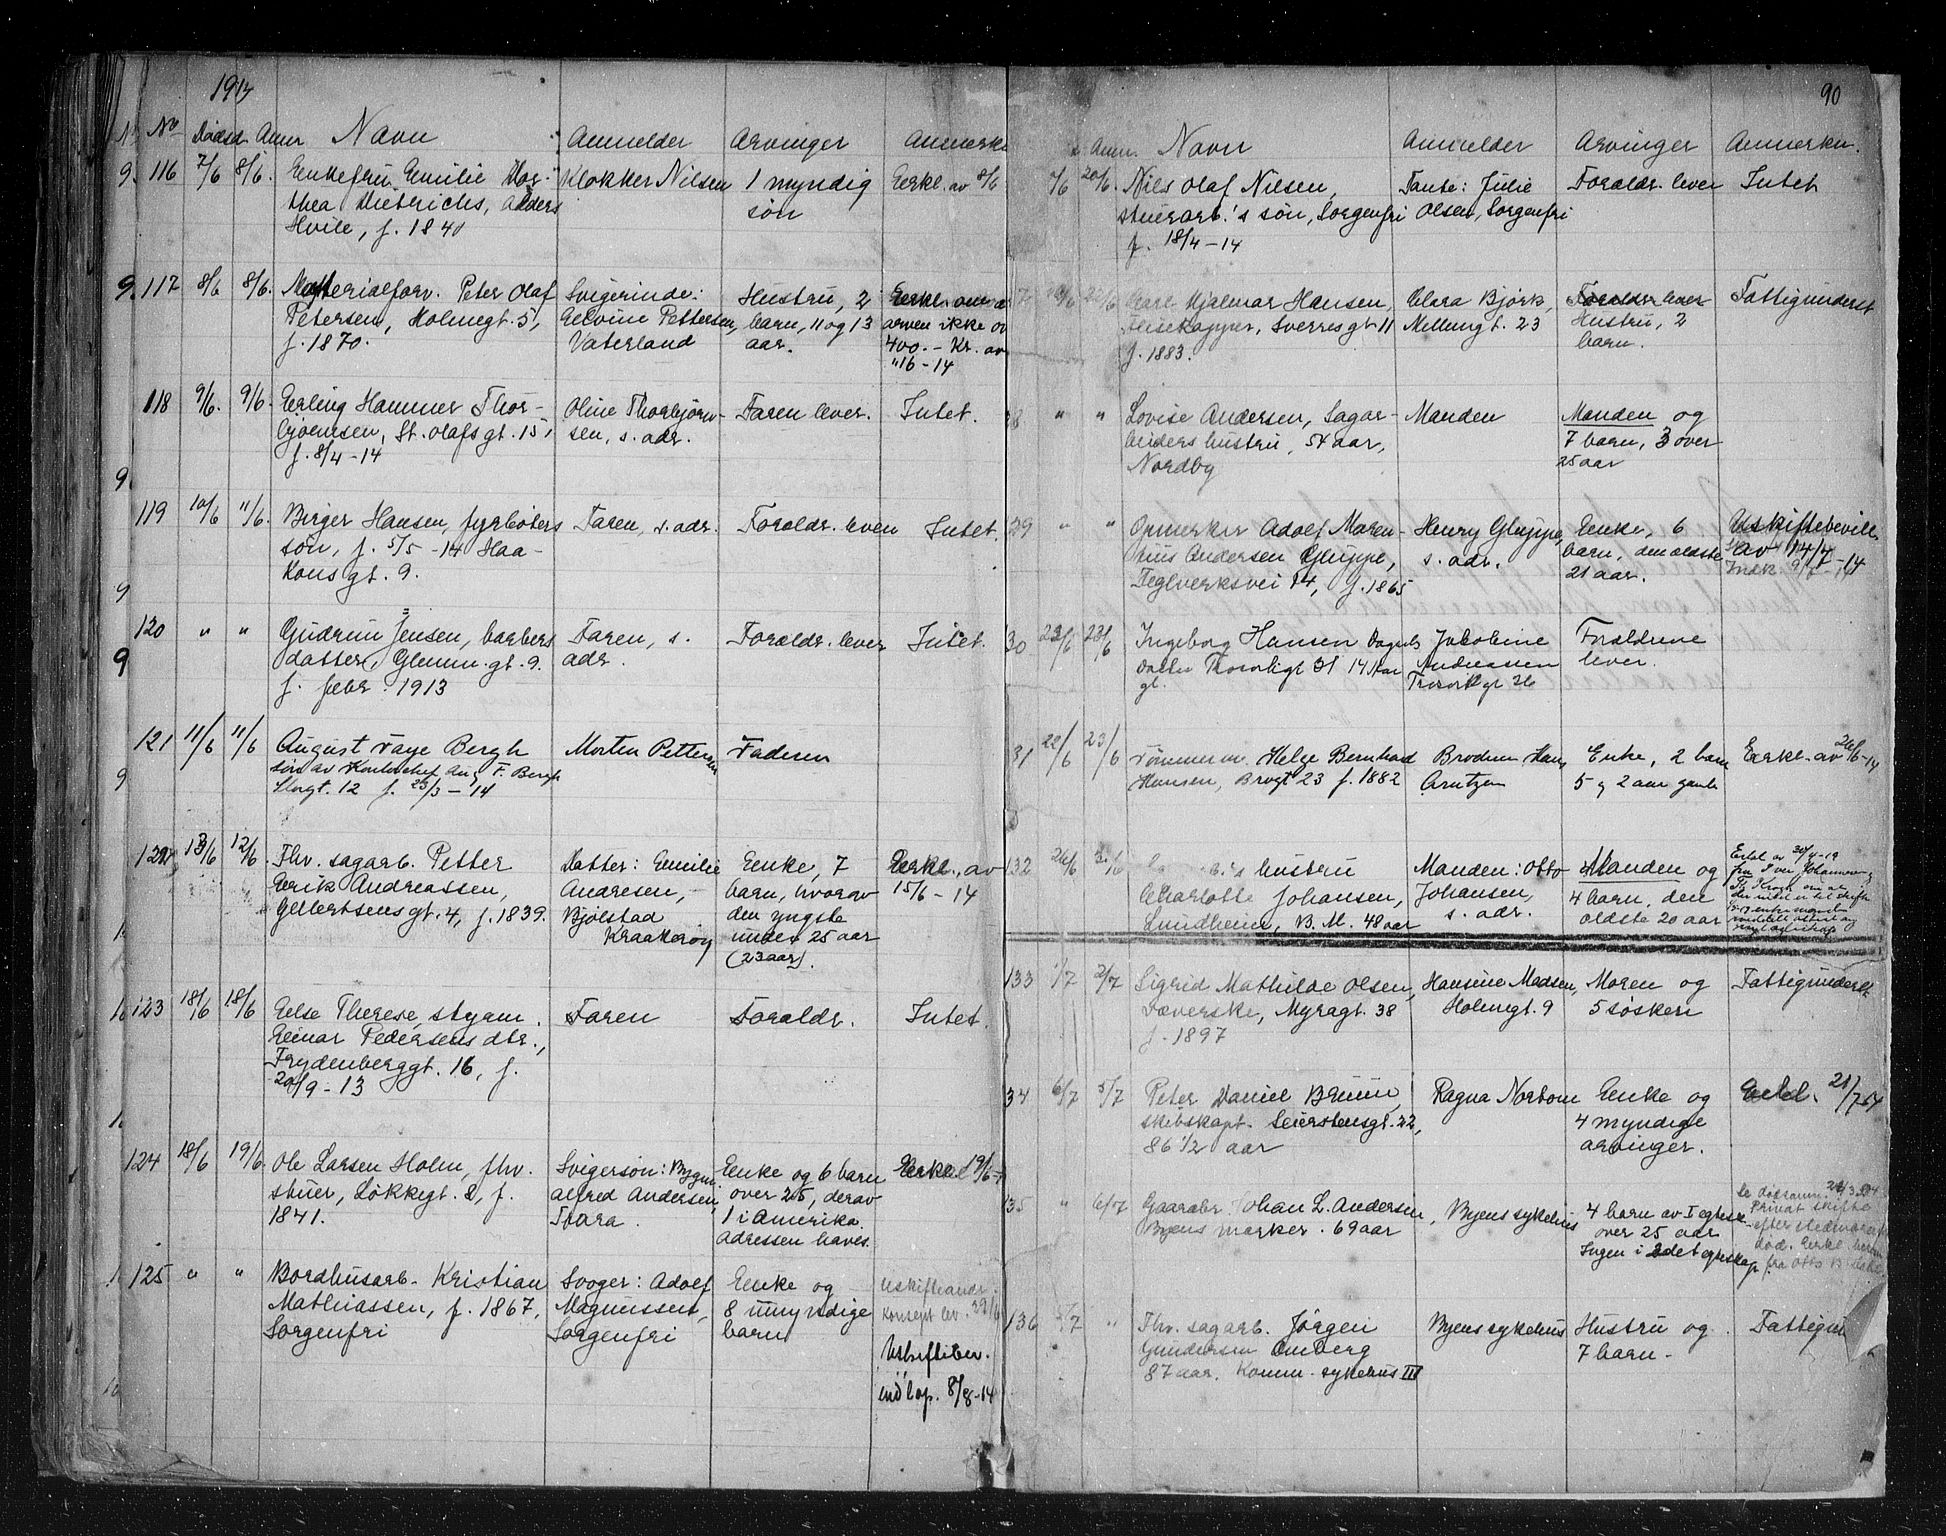 1914
No Dødsd. Anm. Navn Anmelder Arvinger Anmerkn.
116 7/6 8/6. Enkefru Emilie Dor- Klokker Nilsen 1 myndig Erkl. av 8/6
thea Dieterichs, Alders søn
Hvile, f. 1840
117 8/6 8/6. Materialforv. Peter Olaf Svigerinde: Hustru, 2 Erkl. om at
Petersen, Holmegt. 5, Elvine Pettersen, barn, 11 og 13 arven ikke ov
f. 1870. Vaterland aar. 400.- Kr. av
"16-14
118 9/6. 9/6. Erling Hammer Thor- Oline Thorbjørn- Faren lever. Intet.
bjørnsen, St. Olafsgt. 15, sen, s. adr.
f. 8/4-14
119 10/6 11/6. Birger Hansen, fyrbøters Faren, s. adr. Forældr. lever Intet.
søn, f. 5/5-14 Haa-
konsgt. 9.
120 " " Gudrun Jensen, barbers Faren, s. Forældr. lever Intet.
datter, Glemm. gt. 9. adr.
f. febr. 1913
121 11/6 11/6 August Faye Bergh Morten Pettersen Faderen
søn av Kontorchef Aug. F. Bergh
Storgt. 12 f. 23/3-14
122 13/6 12/6. Fhv. sagarb. Petter Datter: Emilie Enke, 7 Erkl. av
Erik Andreassen, Andresen, barn, hvorav 15/6-14
Gellertsensgt. 4, f. 1839. Bjølstad den yngste
Kraakerøy under 25 aar
(23 aar).
123 18/6 18/6 Else Therese, styrm. Faren Forældr. Intet.
Einar Pedersens dtr.,
Frydenberggt. 16, f.
20/9-13
124 18/6 19/6. Ole Larsen Holm, fhv. Svigersøn: Bygm. Enke og 6 barn Erkl 19/6-
stuer, Løkkegt. 2, f. Alfred Andersen, over 25, derav
1841. Tbara. 1 i Amerika.
Adressen haves.
125 " " Bordhusarb. Kristian Svoger: Adolf Enke og Uskifteandr.
Mathiassen, f. 1867, Magnussen, 8 umyndige Konsept lev.
Sorgenfri Sorgenfri barn Uskiftebev.
indlop. 8/8-14
90
Anm. Navn Anmelder Arvinger Anmerkn.
20/6. Nils Olaf Nilsen, Tante: Julie Forældr. lever Intet
stuerarb.'s søn, Sorgenfri Olsen, Sorgenfri
f. 18/4-14
Carl Hjalmar Hansen, Clara Bjørk, Forældr lever Fattigunderst
Heisekapper, Sverresgt 11 Mellemgt. 23 Hustru, 2
f. 1883. barn.
28 " " Lovise Andersen, Sagar- Manden Manden og
beiders hustru, 54 aar, 7 barn, 3 over
Nordby 25 aar
29 " " Opmerker Adolf Maren- Henry Gluppe, Enke, 6 Uskiftebevill.
tius Andersen Gluppe, s. adr. barn, den ældste av 14/7-14
Teglverksvei 14, f. 1865 21 aar.
30 22/6 23/6 Ingeborg Hansen Jacobine Forældrene
datter 14 aar Andreassen lever.
gl. Trosvikgt 26
31 22/6 23/6 Tømmerm. Helge Bernhard Broderen Hans Enke, 2 barn Erkl. av 26/6-14
Hansen, Brogt 23 f. 1882 Arntzen 5 og 2 aar gamle
132 26/6 's hustru Manden: Otto Manden og
Charlotte Johansen, Johansen, 4 barn, den
Lundheim, B. M. 48 aar s. adr. ældste 20 aar
133 1/7 2/7 Sigrid Mathilde Olsen, Hansine Madsen, Moren og Fattigunderst
Væverske, Myragt. 38 Holmegt. 9 5 søsken
f. 1897
34 6/7 5/7 Peter Daniel Bruun, Ragna Norbom Enke og Erkl. 21/7 14
skibskapt. Seierstensgt. 22, 4 myndige
86 1/2 aar arvinger.
35 " 6/7 Gaardbr. Johan L. Andersen, Byens sykehus 4 barn av I egtesk.
Byens marker. 69 aar over 25 aar
Ingen i 2det egteskap.
Privat skifte
136 5/7 " Fhv. sagarb. Jørgen Byens sykehus Hustru og Fattigun
Gundersen Omberg 7 barn -
87 aar. Komm. sykehus III